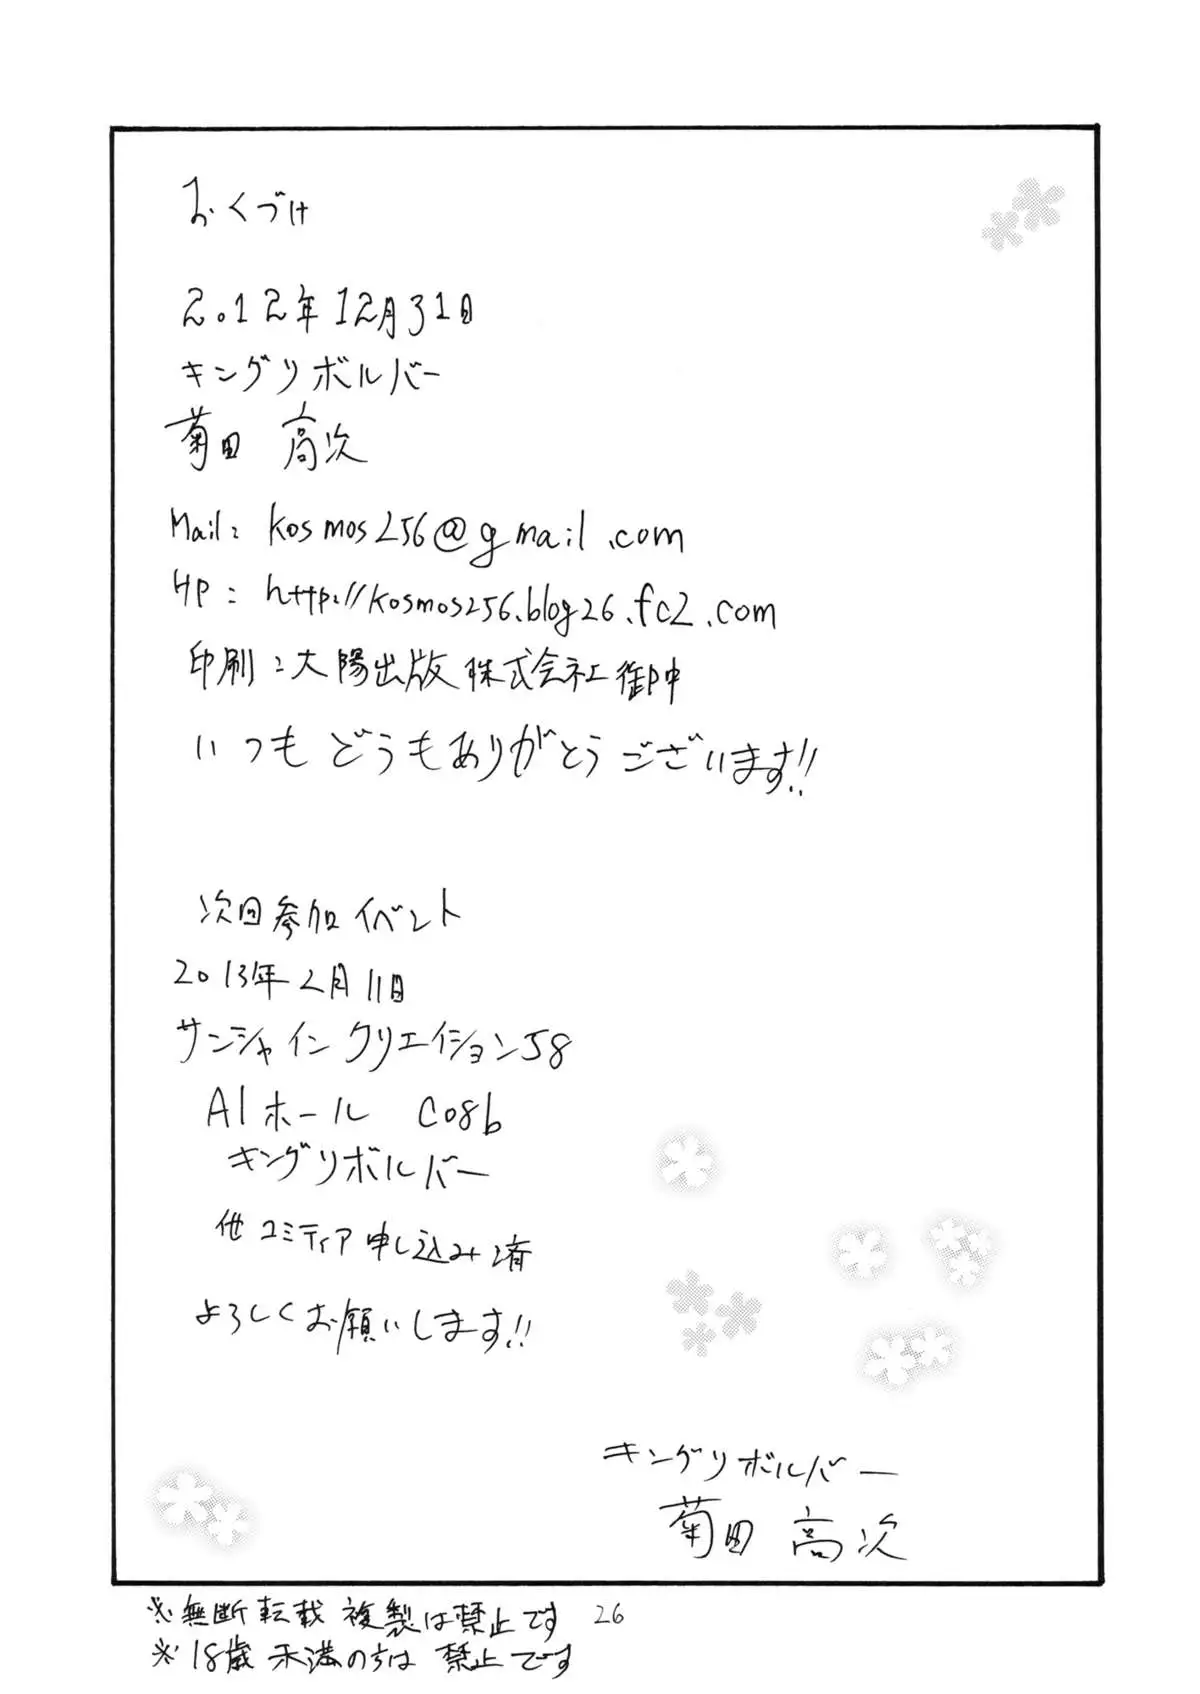 おくづけ
2012年12月31日
キングリボルバー
菊田 高次
Mail: kosmos256@gmail.com
HP: http://kosmos256.blog26.fc2.com
印刷:大陽出版株式会社御中
いつもどうもありがとうございます!!
次回参加イベント
2013年2月11日
サンシャインクリエイション58
A1ホール C08b
キングリボルバー
他コミティア申し込み済
よろしくお願いします!!
キングリボルバー
菊田 高次
※無断転載複製は禁止です 26
※18歳未満の方は禁止です